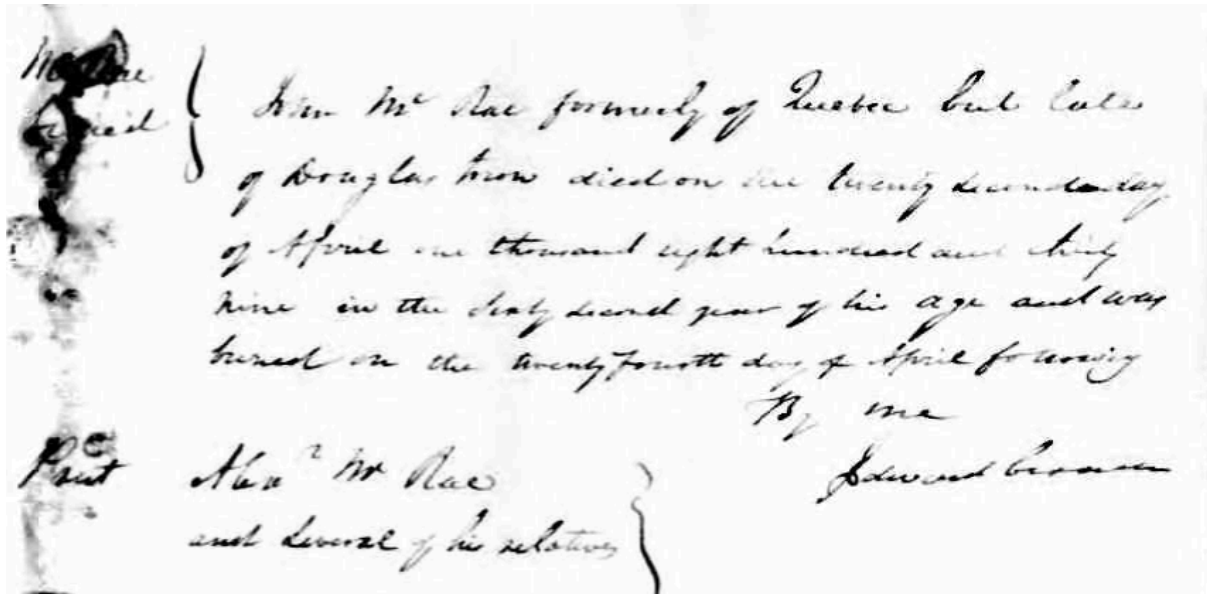 Mc Rae
buried
John Mc Rae formerly of Quebec but late
of Douglas town died on the twenty second day
of April one thousand eight hundred and thirty
nine in the sixty second year of his age and was
buried on the twenty fourth day of April following
By me
Edward
Prest Alexr Mc Rae
and several of his relatives